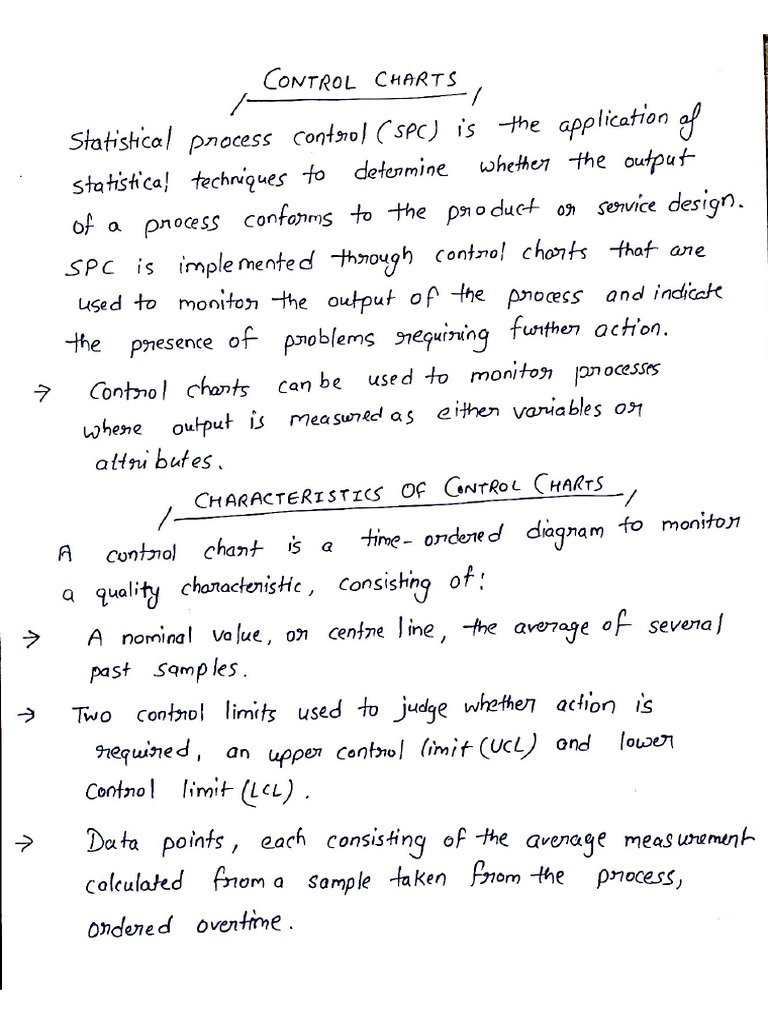 CONTROL CHARTS
Statistical process control (SPC) is the application of
statistical techniques to determine whether the output
of a process conforms to the product or service design.
SPC is implemented through control charts that are
used to monitor the output of the process and indicate
the presence of problems requiring further action.
→ Control charts can be used to monitor processes
where output is measured as either variables or
attributes.
CHARACTERISTICS OF CONTROL CHARTS
A control chart is a time-ordered diagram to monitor
a quality characteristic, consisting of:
→ A nominal value, or centre line, the average of several
past samples.
→ Two control limits used to judge whether action is
required, an upper control limit (UCL) and lower
control limit (LCL).
→ Data points, each consisting of the average measurement
calculated from a sample taken from the process,
ordered overtime.